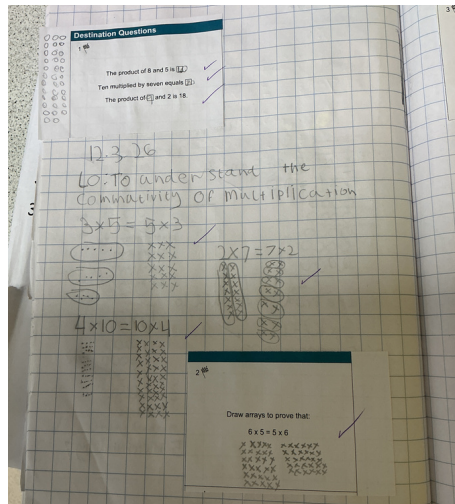 Destination Questions
1
The product of 8 and 5 is
Ten multiplied by seven equals
The product of 9 and 2 is 18.
12.3.26
LO: To understand the
Commutivity of multiplication
3×5 = 5×3
2×7=7×2
4×10=10×4
2
Draw arrays to prove that:
6 x 5 = 5 x 6